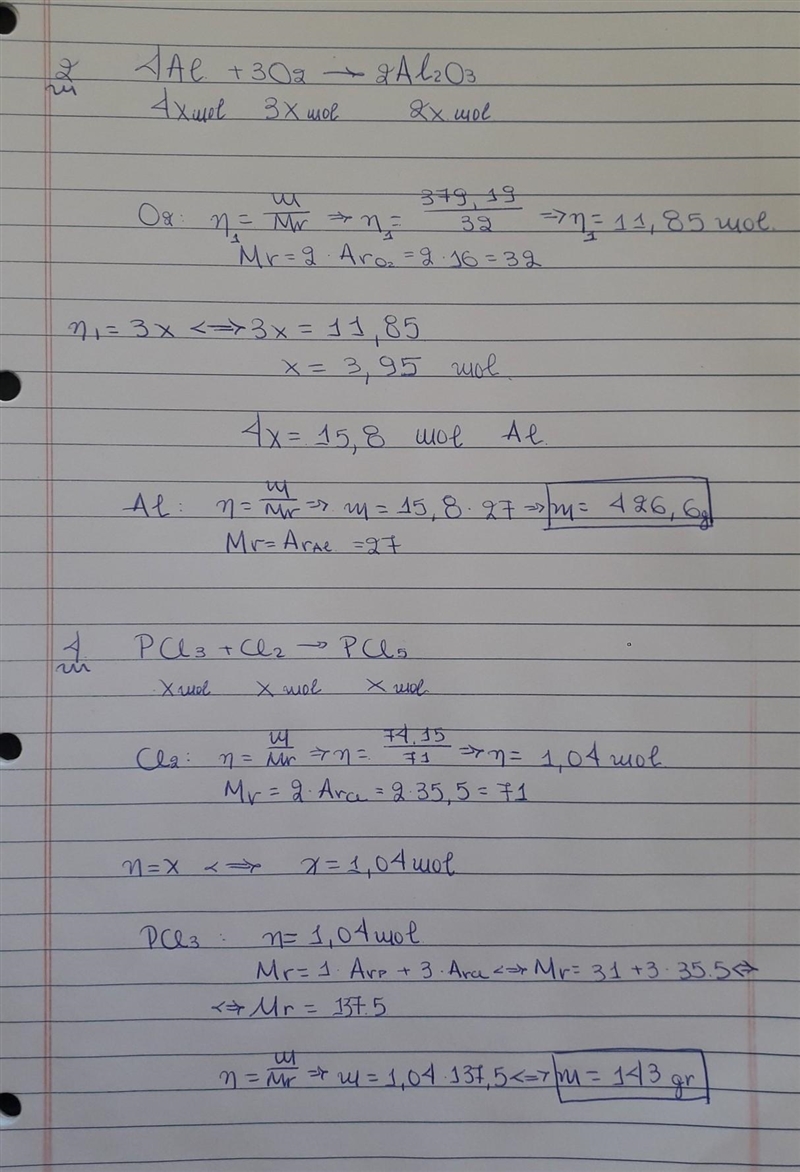 2
4Al + 3O2 → 2Al2O3
4x mol 3x mol 2x mol
O2: n1 = m/Mr ⇒ n1 = 379,19/32 ⇒ n1 = 11,85 mol.
Mr = 2 · ArO2 = 2 · 16 = 32
n1 = 3x <=> 3x = 11,85
x = 3,95 mol
4x = 15,8 mol Al
Al: n = m/Mr ⇒ m = 15,8 · 27 ⇒ m = 426,6g
Mr = ArAl = 27
4
PCl3 + Cl2 → PCl5
x mol x mol x mol
Cl2: n = m/Mr ⇒ n = 74,15/71 ⇒ n = 1,04 mol
Mr = 2 · ArCl = 2 · 35,5 = 71
n = x <=> x = 1,04 mol
PCl3: n = 1,04 mol
Mr = 1 · ArP + 3 · ArCl <=> Mr = 31 + 3 · 35.5 <=>
<=> Mr = 137.5
n = m/Mr ⇒ m = 1,04 · 137,5 <=> m = 143 gr